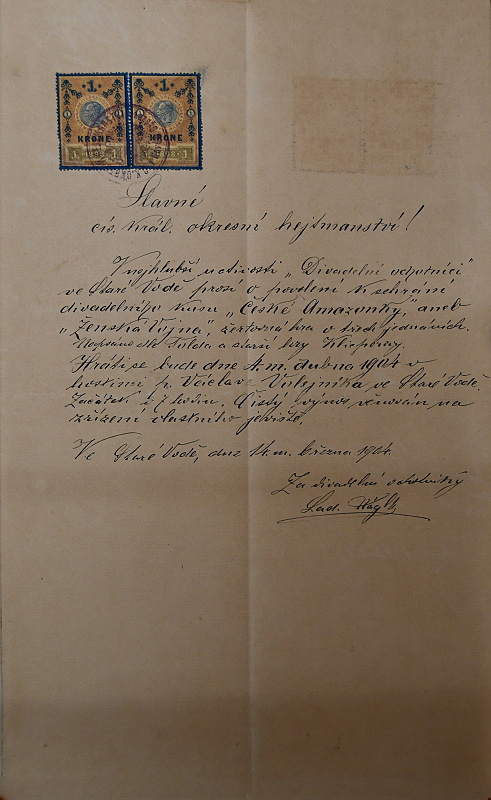 1 1
KRONE KRONE
1 1898 1 1 1898 1
Slavné
cís. král. okresní hejtmanství!
V nejhlubší uctivosti „Divadelní ochotníci“
ve Staré Vodě prosí o povolení k sehrání
divadelního kusu „České Amazonky“, aneb
„Ženská Vojna“, žertovná hra o třech jednáních.
dle Fulda a starší hry Klicpery.
Hráti se bude dne 4. m. dubna 1904 v
hostinci p. Václava ve Staré Vodě.
Začátek o 7 hodin. Čistý výnos věnován na
zřízení vlastního jeviště.
Ve Staré Vodě, dne 14. m. března 1904.
Za divadelní ochotníky
Lad.